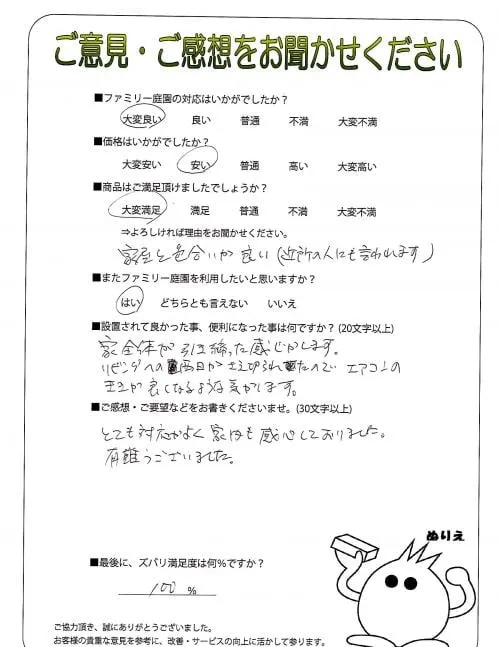 ご意見・ご感想をお聞かせください
■ファミリー庭園の対応はいかがでしたか？
大変良い 良い 普通 不満 大変不満
■価格はいかがでしたか？
大変安い 安い 普通 高い 大変高い
■商品はご満足頂けましたでしょうか？
大変満足 満足 普通 不満 大変不満
⇒よろしければ理由をお聞かせください。
家屋と色合いが良い(近所の人にも言われます)
■またファミリー庭園を利用したいと思いますか？
はい どちらとも言えない いいえ
■設置されて良かった事、便利になった事は何ですか？(20文字以上)
家全体が引き締った感じがします。
リビングへの西日がさえぎられたので エアコンの
が良くなるような気がします。
■ご感想・ご要望などをお書きくださいませ。(30文字以上)
とても対応がよく 家内も感心しておりました。
有難うございました。
ぬりえ
■最後に、ズバリ満足度は何％ですか？
100 ％
ご協力頂き、誠にありがとうございました。
お客様の貴重な意見を参考に、改善・サービスの向上に活かして参ります。